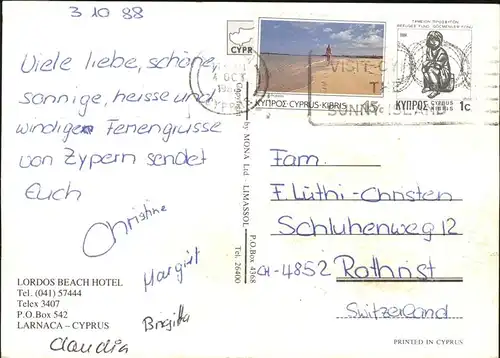 3 10 88
Viele liebe, schöne,
sonnige, heisse und
windige Feriengrüsse
von Zypern sendet
Euch
Christine
Margrit
Brigitta
Claudia
LORDOS BEACH HOTEL
Tel. (041) 57444
Telex 3407
P.O.Box 542
LARNACA – CYPRUS
by MONA Ltd - LIMASSOL
P.O.Box 4388 Tel. 26400
CYPR
4 OCT
ΚΥΠΡΟΣ·CYPRUS·KIBRIS 15c
1988
ΚΥΠΡΟΣ CYPRUS KIBRIS 1c
VISIT CY
SUNNY ISLAND
Fam.
F. Lüthi-Christen
Schluhenweg 12
CH-4852 Rothrist
Switzerland
PRINTED IN CYPRUS